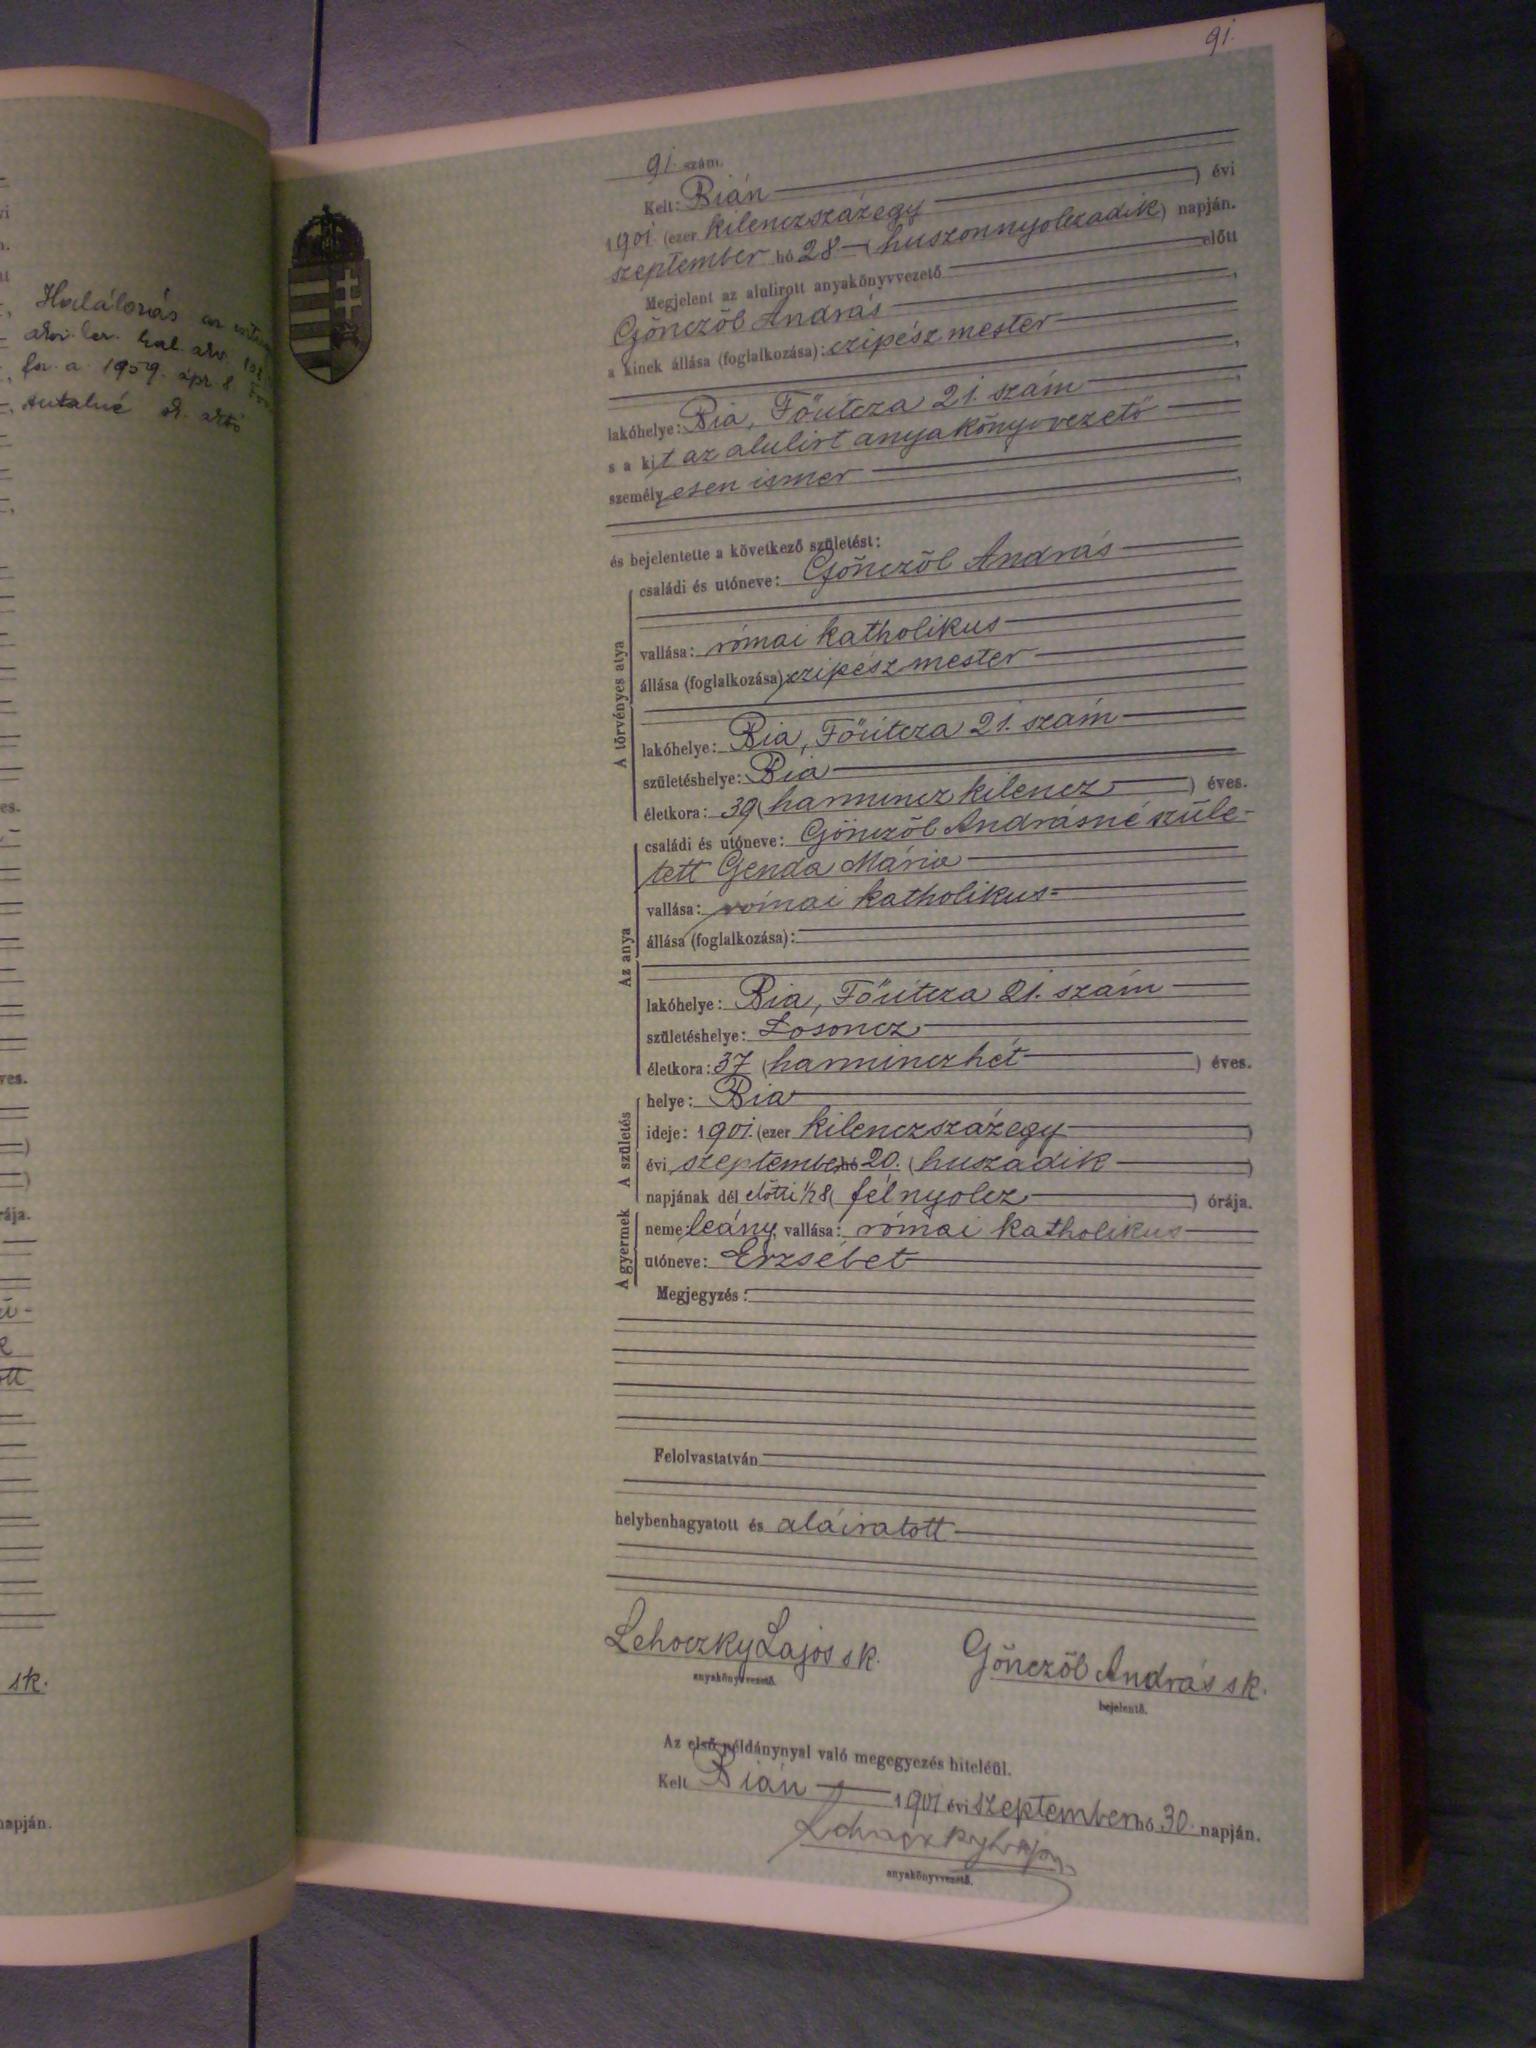 91.
91. szám.
Kelt: Bián
1901. (ezer kilenczszázegy) évi
szeptember hó 28 (huszonnyolczadik) napján.
Megjelent az alulirott anyakönyvvezető előtt
Gönczöl András
a kinek állása (foglalkozása): czipész mester
lakóhelye: Bia, Főutcza 21. szám
s a kit az alulirt anyakönyvvezető
személyesen ismer
és bejelentette a következő születést:
A törvényes atya
családi és utóneve: Gönczöl András
vallása: római katholikus
állása (foglalkozása): czipész mester
lakóhelye: Bia, Főutcza 21. szám
születéshelye: Bia
életkora: 39 (harmincz kilencz) éves.
Az anya
családi és utóneve: Gönczöl Andrásné szüle-
tett Genda Mária
vallása: római katholikus
állása (foglalkozása):
lakóhelye: Bia, Főutcza 21. szám
születéshelye: Losoncz
életkora: 37 (harminczhét) éves.
A születés
helye: Bia
ideje: 1901. (ezer kilenczszázegy)
évi szeptember hó 20. (huszadik)
napjának dél előtti ½8 (fél nyolcz) órája.
A gyermek
neme: leány, vallása: római katholikus
utóneve: Erzsébet
Megjegyzés:
Felolvastatván
helybenhagyatott és aláiratott
Lehoczky Lajos sk. Gönczöl András sk.
anyakönyvvezető. bejelentő.
Az első példánynyal való megegyezés hiteléül.
Kelt Bián 1901 évi szeptember hó 30. napján.
Lehoczky Lajos
anyakönyvvezető.
Halálozás az
1959. ápr. 8.
es.
ves.
rája.
sk.
napján.